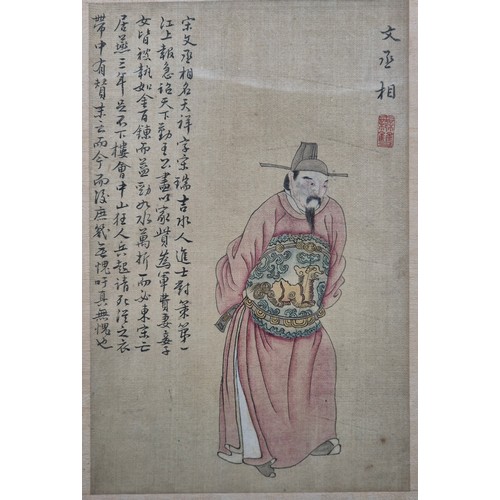 文丞相
宋文丞相名天祥字宋瑞吉水人進士對策第一
江上報急詔天下勤王公盡以家貲為軍費妻妾子
女皆被執如金百鍊而益勁如水萬折而必東宋亡
居燕三年足不下樓會中山狂人兵起請死須之衣
帶中有贊末云而今而後庶幾無愧吁真無愧也